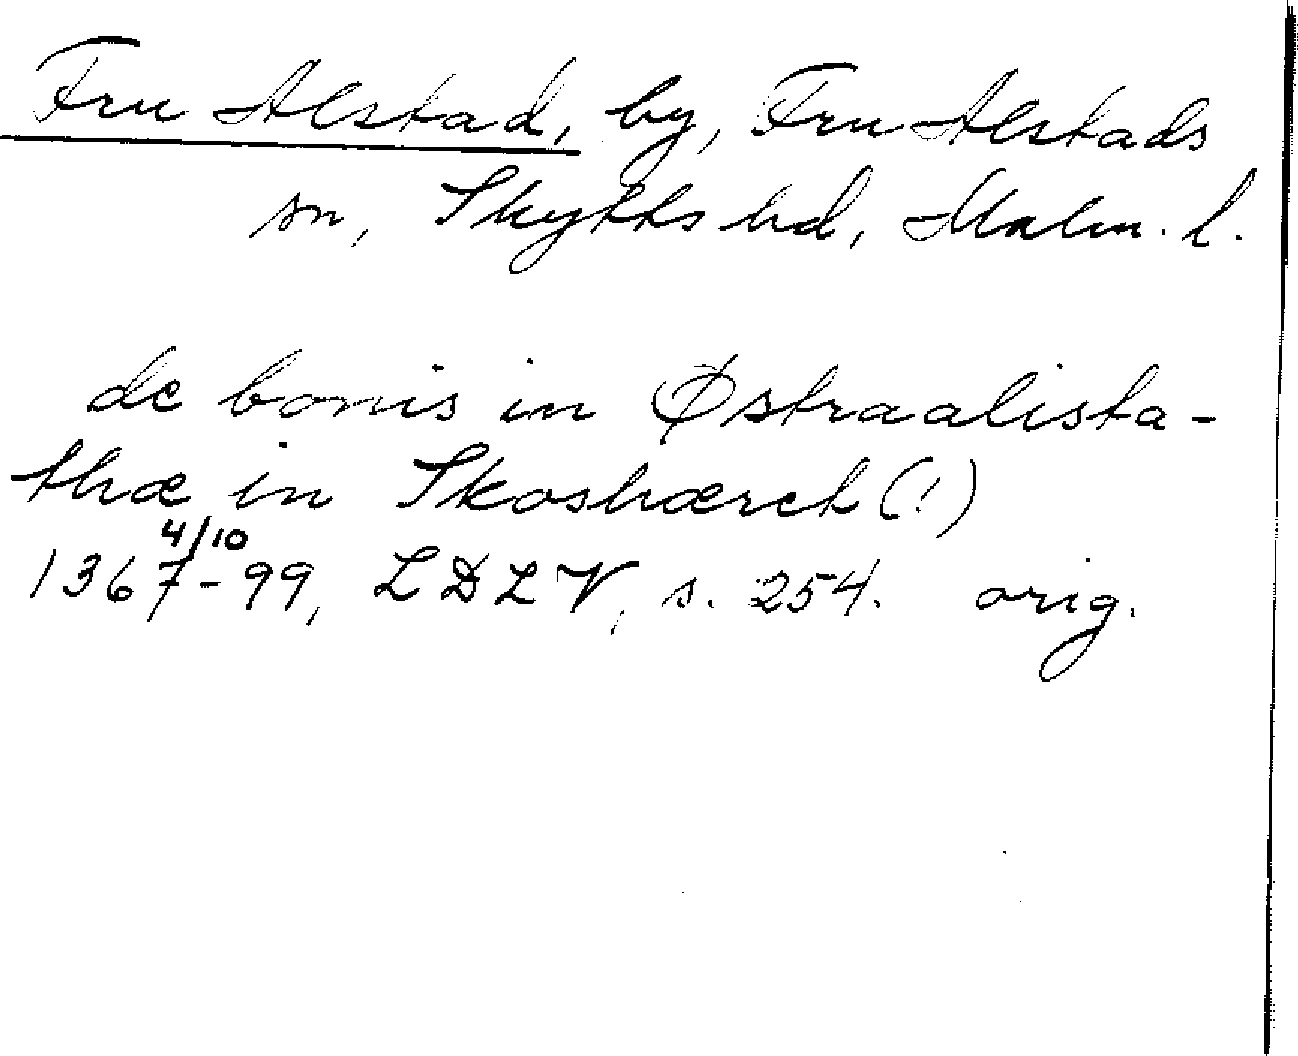 Fru Alstad, by, Fru Alstads
sn, Skytts hd, Malm. l.
de bonis in Østraalista-
thæ in Skoshærch (!)
4/10
1367-99, LDLV, s. 254. orig.